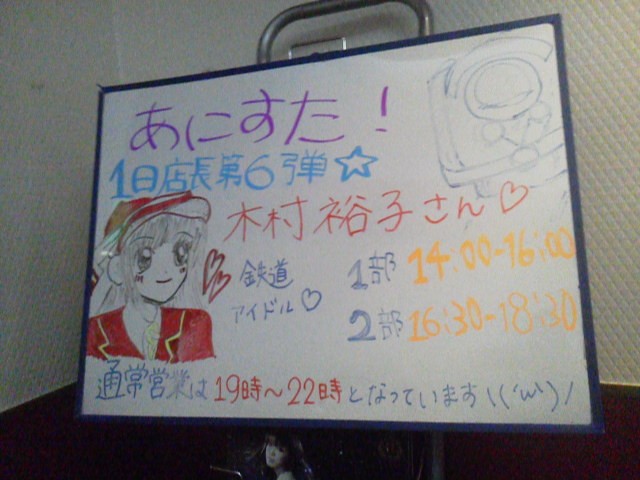 あにすた!
1日店長第6弾☆
木村裕子さん♡
鉄道
アイドル♡
1部 14:00-16:00
2部 16:30-18:30
通常営業は19時〜22時となっています\(´ω`)/